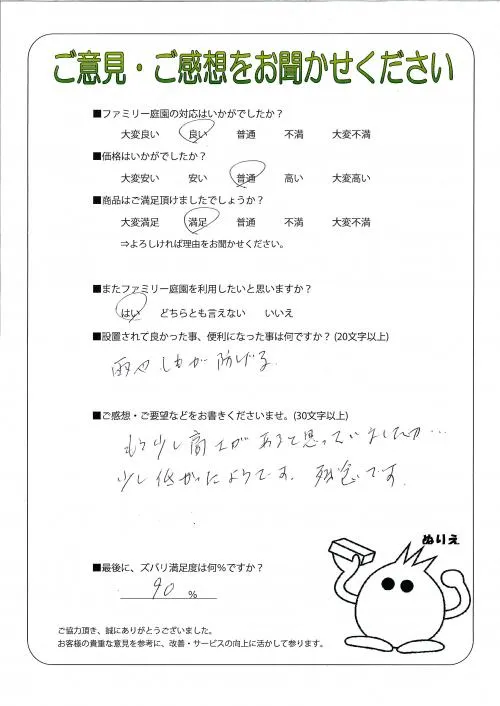 ご意見・ご感想をお聞かせください
■ファミリー庭園の対応はいかがでしたか？
大変良い 良い 普通 不満 大変不満
■価格はいかがでしたか？
大変安い 安い 普通 高い 大変高い
■商品はご満足頂けましたでしょうか？
大変満足 満足 普通 不満 大変不満
⇒よろしければ理由をお聞かせください。
■またファミリー庭園を利用したいと思いますか？
はい どちらとも言えない いいえ
■設置されて良かった事、便利になった事は何ですか？(20文字以上)
雨や が防げる
■ご感想・ご要望などをお書きくださいませ。(30文字以上)
もう少し高さがあると思っていましたが…
少し低かったようです。残念です。
ぬりえ
■最後に、ズバリ満足度は何％ですか？
90 %
ご協力頂き、誠にありがとうございました。
お客様の貴重な意見を参考に、改善・サービスの向上に活かして参ります。